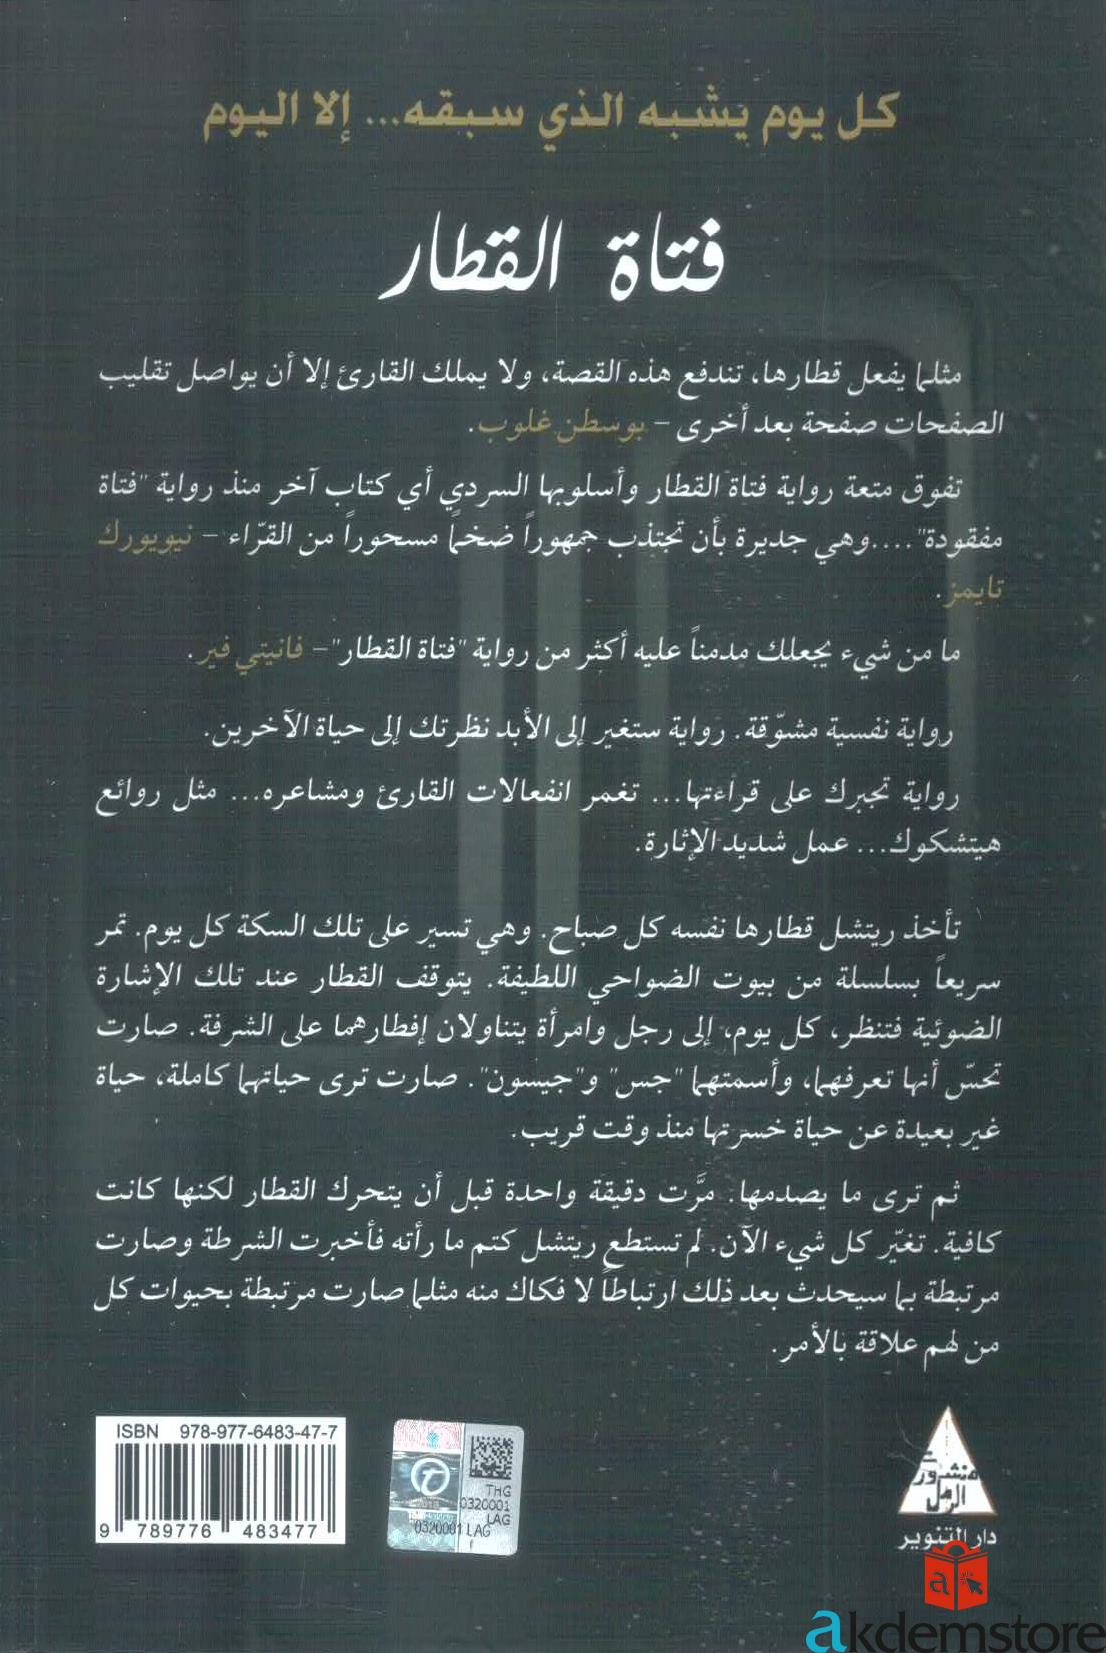 كل يوم يشبه الذي سبقه... إلا اليوم
فتاة القطار
مثلما يفعل قطارها، تندفع هذه القصة، ولا يملك القارئ إلا أن يواصل تقليب
الصفحات صفحة بعد أخرى – بوسطن غلوب.
تفوق متعة رواية فتاة القطار وأسلوبها السردي أي كتاب آخر منذ رواية "فتاة
مفقودة"....وهي جديرة بأن تجتذب جمهوراً ضخماً مسحوراً من القرّاء – نيويورك
تايمز.
ما من شيء يجعلك مدمناً عليه أكثر من رواية "فتاة القطار"– فانيتي فير.
رواية نفسية مشوّقة. رواية ستغير إلى الأبد نظرتك إلى حياة الآخرين.
رواية تجبرك على قراءتها... تغمر انفعالات القارئ ومشاعره... مثل روائع
هيتشكوك... عمل شديد الإثارة.
تأخذ ريتشل قطارها نفسه كل صباح. وهي تسير على تلك السكة كل يوم. تمر
سريعاً بسلسلة من بيوت الضواحي اللطيفة. يتوقف القطار عند تلك الإشارة
الضوئية فتنظر، كل يوم، إلى رجل وامرأة يتناولان إفطارهما على الشرفة. صارت
تحسّ أنها تعرفهما، وأسمتهما "جس" و"جيسون". صارت ترى حياتهما كاملة، حياة
غير بعيدة عن حياة خسرتها منذ وقت قريب.
ثم ترى ما يصدمها. مرَّت دقيقة واحدة قبل أن يتحرك القطار لكنها كانت
كافية. تغيّر كل شيء الآن. لم تستطع ريتشل كتم ما رأته فأخبرت الشرطة وصارت
مرتبطة بما سيحدث بعد ذلك ارتباطاً لا فكاك منه مثلما صارت مرتبطة بحيوات كل
من لهم علاقة بالأمر.
ISBN 978-977-6483-47-7
9 789776 483477
THG
0320001
LAG
0320001 LAG
منشورات
الرمل
دار التنوير
a
akdemstore